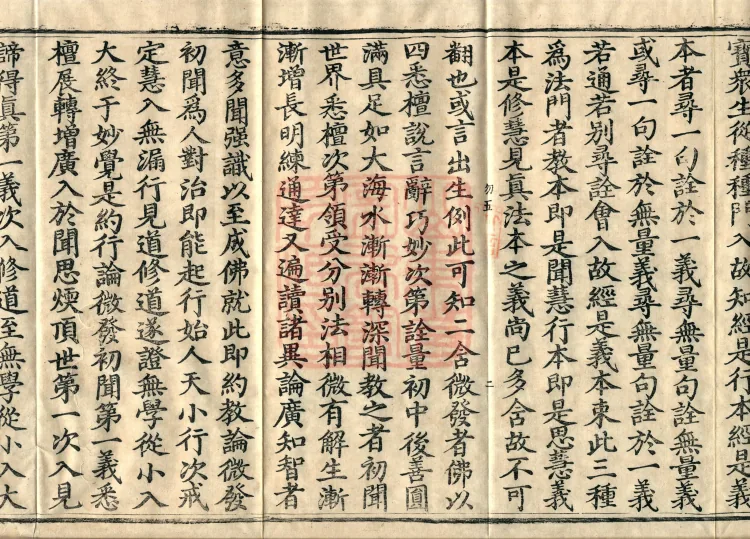 寶衆生從種種門入故知經是行本經是義
本者尋一句詮於一義尋無量句詮無量義
或尋一句詮於無量義尋無量句詮於一義
若通若別尋詮會入故經是義本束此三種
爲法門者教本即是聞慧行本即是思慧義
本是修慧見眞法本之義尚已多含故不可
勿五
二
翻也或言出生例此可知二含微發者佛以
四悉檀說言辭巧妙次第詮量初中後善圓
滿具足如大海水漸漸轉深聞教之者初聞
世界悉檀次第領受分别法相微有解生漸
漸增長明練通達又遍讀諸異論廣知智者
意多聞强識以至成佛就此即約教論微發
初聞爲人對治即能起行始人天小行次戒
定慧入無漏行見道修道遂證無學從小入
大終于妙覺是約行論微發初聞第一義悉
檀展轉增廣入於聞思煗頂世第一次入見
諦得眞第一義次入修道至無學從小入大